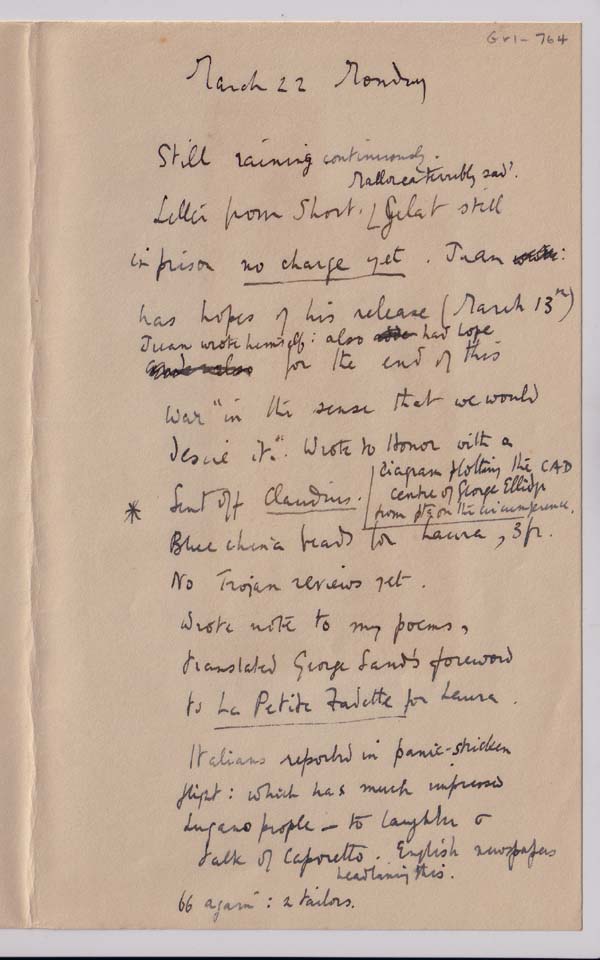 GV1-764
March 22 Monday
Still raining continuously.
'Mallorca terribly sad'.
Letter from Short. Gelat still
in prison no charge yet. Juan
has hopes of his release (March 13th)
Juan wrote himself: also had hope
for the end of this
war "in the sense that we would
desire it." Wrote to Honor with a
diagram plotting the CAD
centre of George Ellidge
from pts on the circumference.
* Sent off Claudius.
Blue china beads for Laura, 3fr.
No Trojan reviews yet.
Wrote note to my poems,
translated George Sand's foreword
to La Petite Fadette for Laura.
Italians reported in panic-stricken
flight: which has much impressed
Lugano people – to laughter &
talk of Caporetto. English newspapers
headlining this.
66 again: 2 tailors.